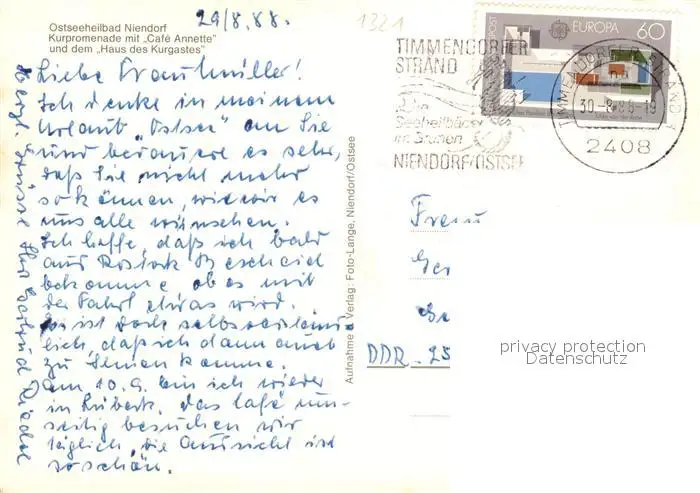 29/8.88.
1321
Ostseeheilbad Niendorf
Kurpromenade mit „Café Annette"
und dem „Haus des Kurgastes"
Liebe Frau Müller!
Ich denke in meinem
Urlaub „Ostsee" an Sie
und bedauere es sehr,
daß Sie nicht mehr
so können, wie wir es
uns alle wünschen.
Ich hoffe, daß ich bald
aus Rostock Bescheid
bekomme ob es mit
der Fahrt etwas wird.
ist doch selbstverständ-
lich, daß ich dann auch
zu Ihnen komme.
Am 10.9. bin ich wieder
in Lübeck. Das Café um-
seitig besuchen wir
täglich, die Aussicht ist
so schön.
Herzl. Grüsse Ihre Gertrud
Aufnahme & Verlag: Foto-Lange, Niendorf/Ostsee
TIMMENDORFER
STRAND
Seeheilbäder
im Grünen
NIENDORF/OSTSEE
EUROPA 60
TIMMENDORFER STRAND 1
30-8.88-19
2408
Frau
Ger
DDR-25
privacy protection
Datenschutz